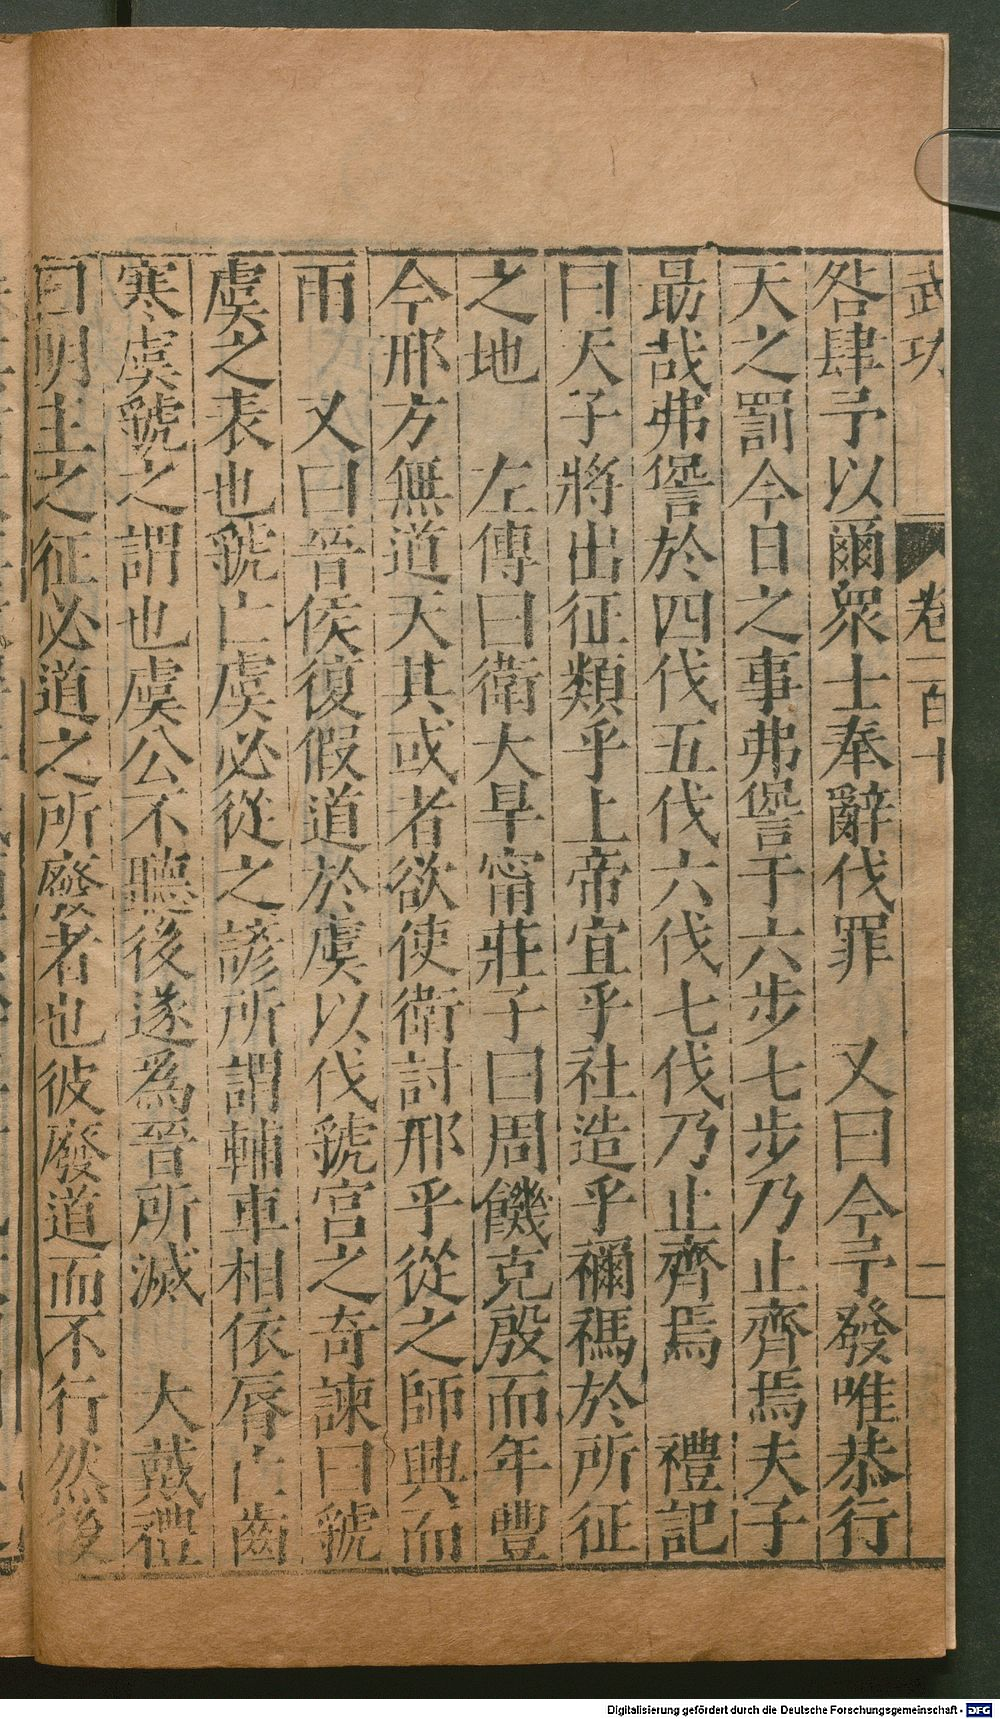 武功 卷一百十 二
咎肆予以爾衆士奉辭伐罪　又曰今予發唯恭行
天之罰今日之事弗諐于六步七步乃止齊焉夫子
勗哉弗諐於四伐五伐六伐七伐乃止齊焉　禮記
曰天子將出征類乎上帝宜乎社造乎禰禡於所征
之地　左傳曰衛大旱甯莊子曰周饑克殷而年豐
今邢方無道天其或者欲使衛討邢乎從之師興而
雨　又曰晉侯復假道於虞以伐虢宮之奇諫曰虢
虞之表也虢亡虞必從之諺所謂輔車相依脣亡齒
寒虞虢之謂也虞公不聽後遂爲晉所滅　大戴禮
曰明主之征必道之所廢者也彼廢道而不行然後
Digitalisierung gefördert durch die Deutsche Forschungsgemeinschaft - DFG